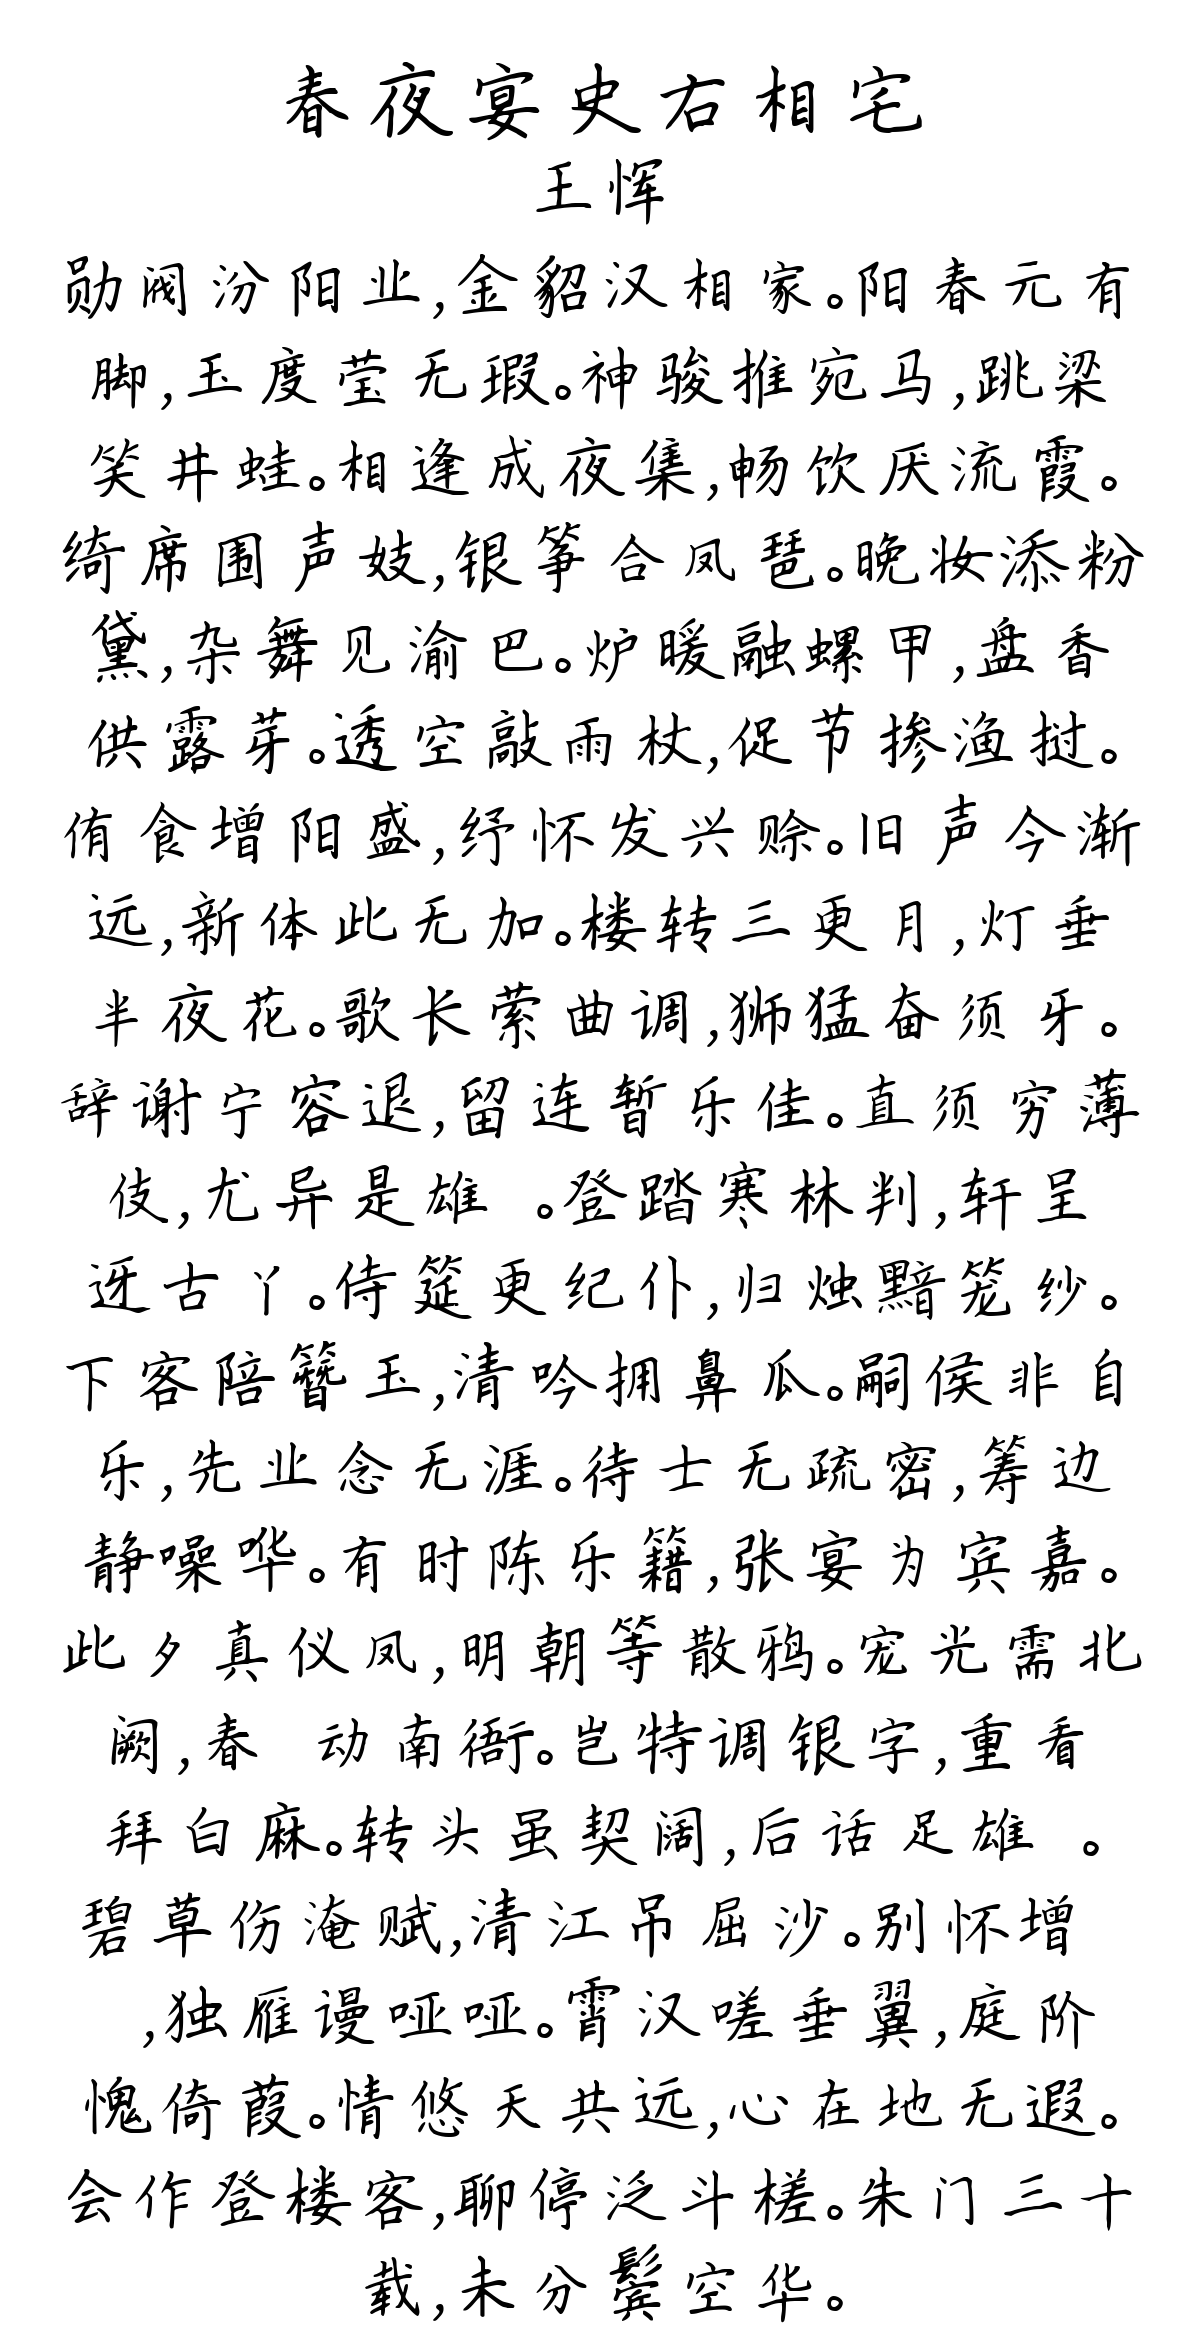 春夜宴史右相宅
王恽
勋阀汾阳业,金貂汉相家。阳春元有
脚,玉度莹无瑕。神骏推宛马,跳梁
笑井蛙。相逢成夜集,畅饮厌流霞。
绮席围声妓,银筝合凤琶。晚妆添粉
黛,杂舞见渝巴。炉暖融螺甲,盘香
供露芽。透空敲雨杖,促节掺渔挝。
侑食增阳盛,纾怀发兴赊。旧声今渐
远,新体此无加。楼转三更月,灯垂
半夜花。歌长萦曲调,狮猛奋须牙。
辞谢宁容退,留连暂乐佳。直须穷薄
伎,尤异是雄 。登踏寒林判,轩呈
迓古丫。侍筵更纪仆,归烛黯笼纱。
下客陪簪玉,清吟拥鼻瓜。嗣侯非自
乐,先业念无涯。待士无疏密,筹边
静噪哗。有时陈乐籍,张宴为宾嘉。
此夕真仪凤,明朝等散鸦。宠光需北
阙,春 动南衙。岂特调银字,重看
拜白麻。转头虽契阔,后话足雄 。
碧草伤淹赋,清江吊屈沙。别怀增
,独雁谩哑哑。霄汉嗟垂翼,庭阶
愧倚葭。情悠天共远,心在地无遐。
会作登楼客,聊停泛斗槎。朱门三十
载,未分鬓空华。